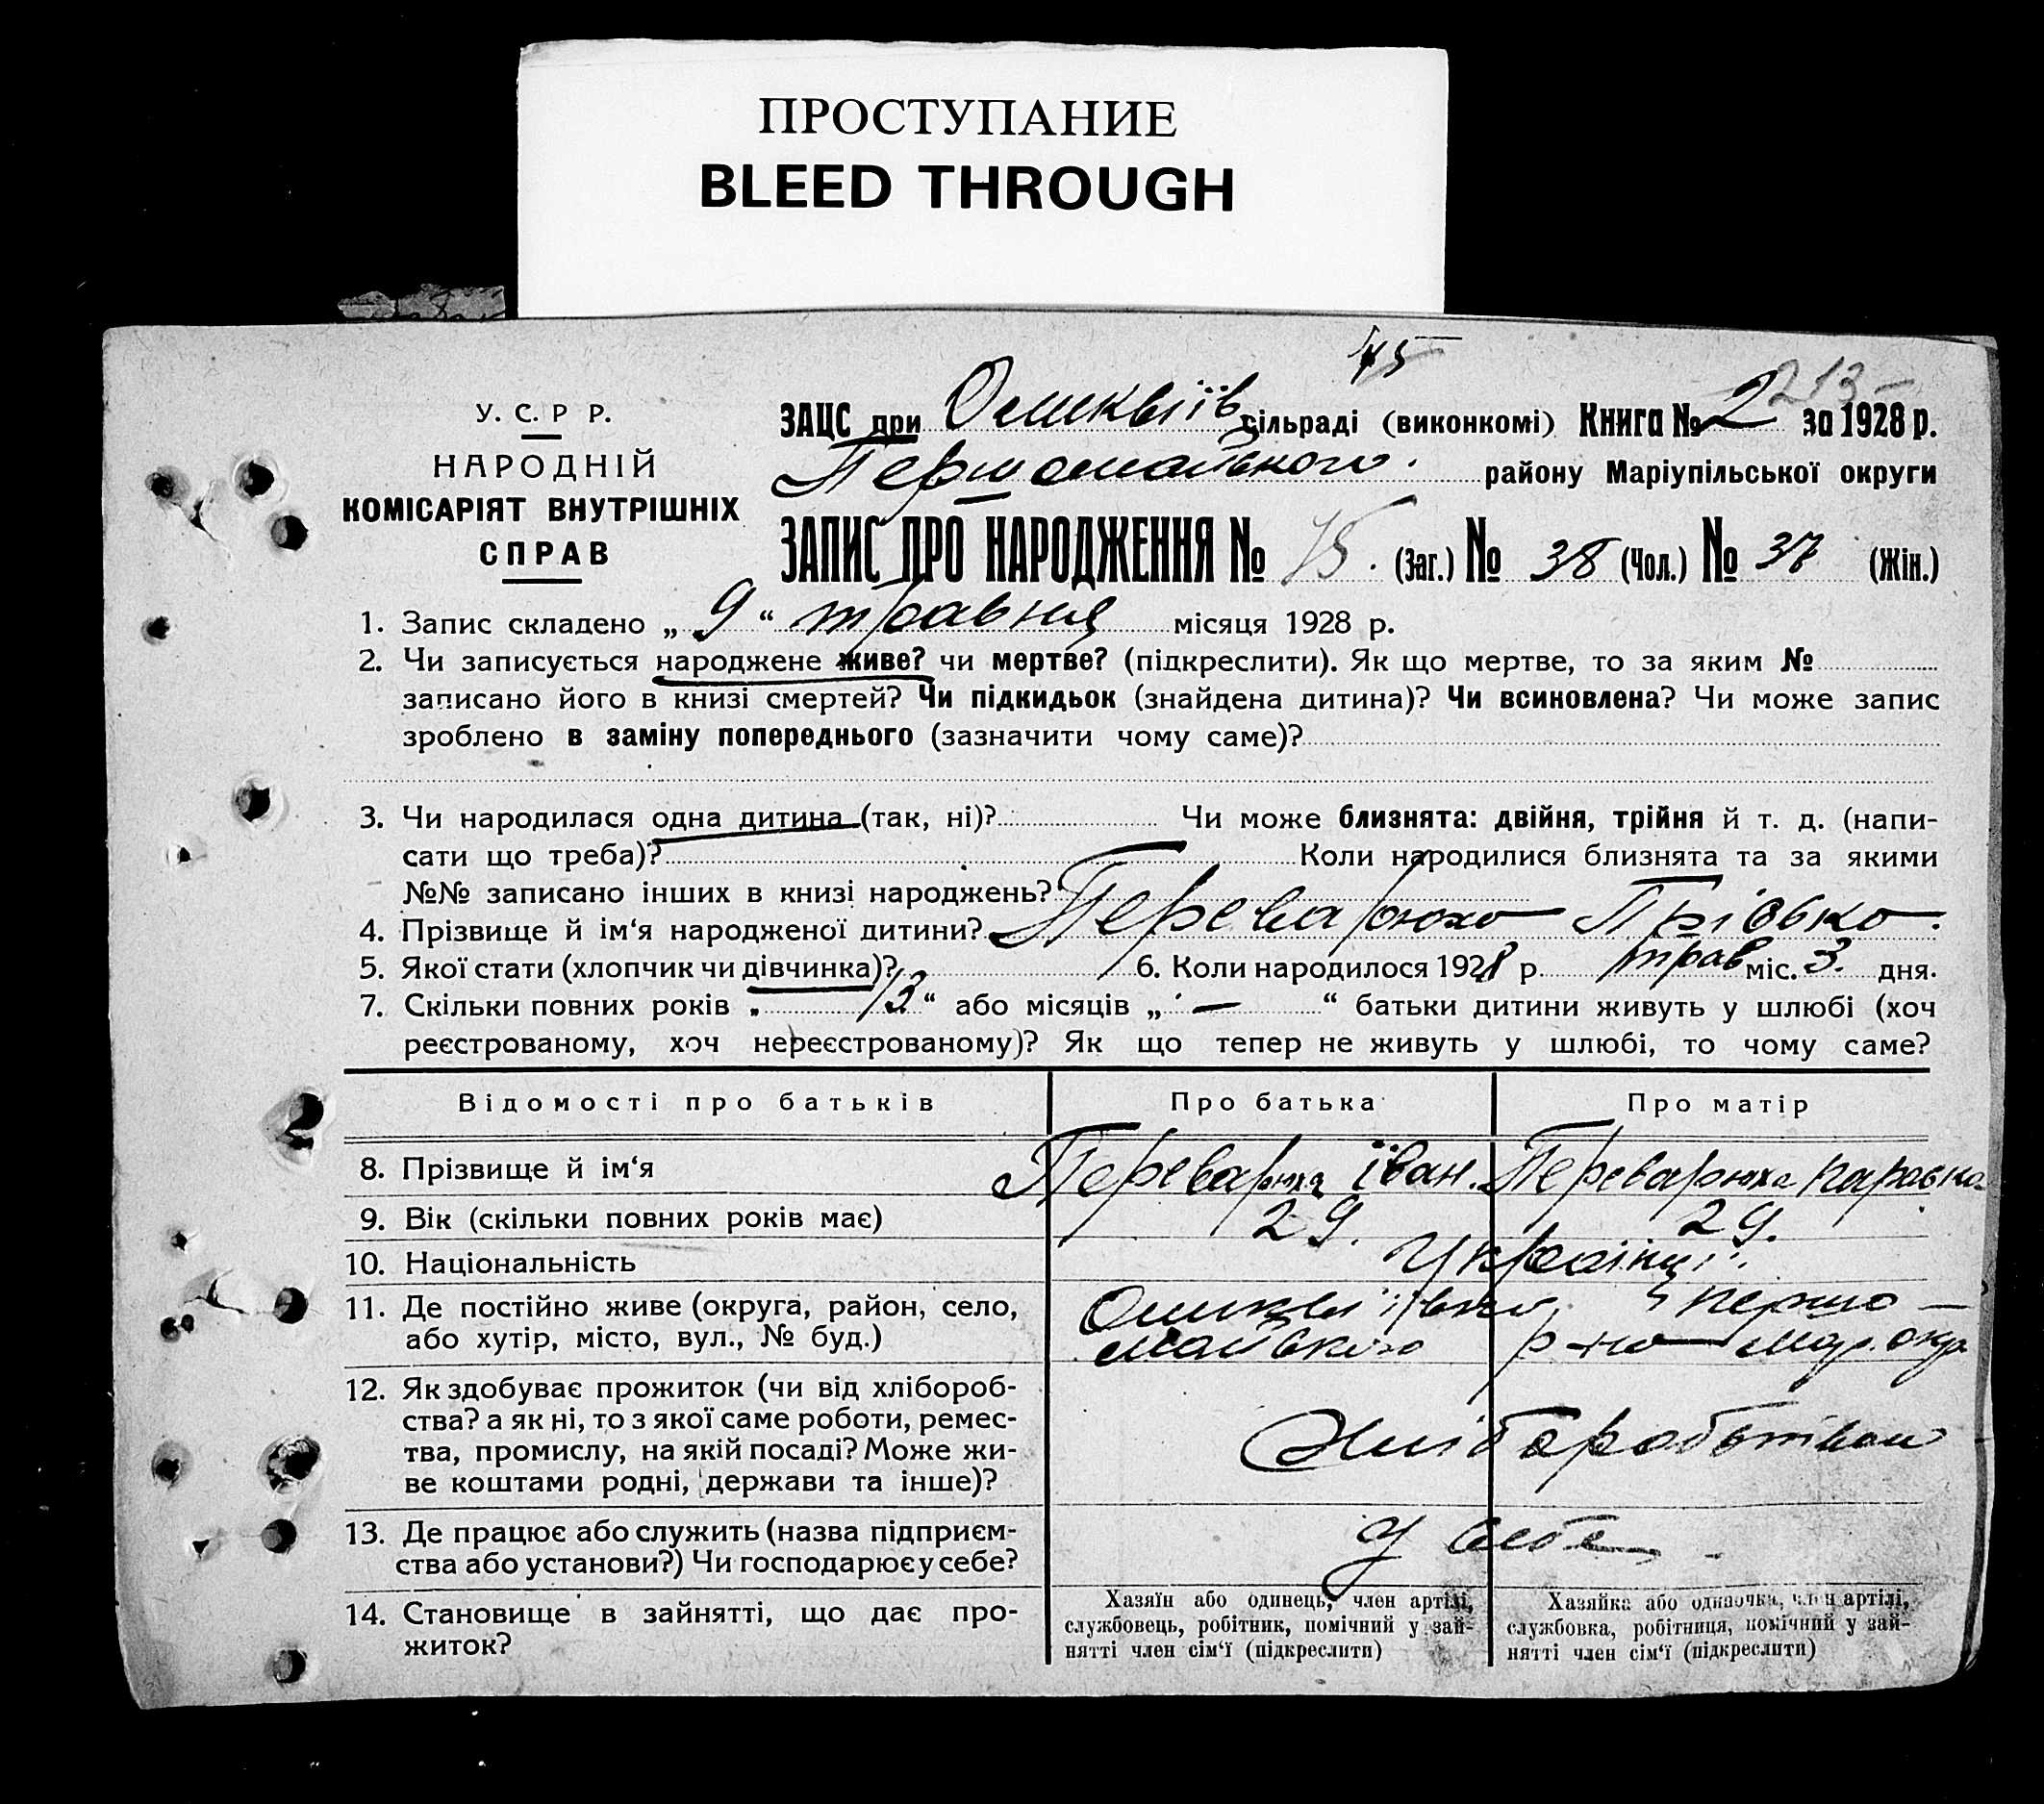 ПРОСТУПАНИЕ
BLEED THROUGH
У. С. Р Р.
НАРОДНІЙ
КОМІСАРІЯТ ВНУТРІШНІХ
СПРАВ
ЗАЦС при сільраді (виконкомі) Книга № 2 за 1928 р.
Першомайського району Маріупільської округи
ЗАПИС ПРО НАРОДЖЕННЯ № 75. (Заг.) № 38 (Чол.) № 37 (Жін.)
1. Запис складено „ 9 “ травня місяця 1928 р.
2. Чи записується народжене живе? чи мертве? (підкреслити). Як що мертве, то за яким №
записано його в книзі смертей? Чи підкидьок (знайдена дитина)? Чи всиновлена? Чи може запис
зроблено в заміну попереднього (зазначити чому саме)?
3. Чи народилася одна дитина (так, ні)? Чи може близнята: двійня, трійня й т. д. (напи-
сати що треба)? Коли народилися близнята та за якими
№№ записано інших в книзі народжень?
4. Прізвище й ім‘я народженої дитини? Переварюхо
5. Якої стати (хлопчик чи дівчинка)? 6. Коли народилося 1928 р. трав міс. 3. дня.
7. Скільки повних років „ 13 “ або місяців „ — “ батьки дитини живуть у шлюбі (хоч
реєстрованому, хоч нереєстрованому)? Як що тепер не живуть у шлюбі, то чому саме?
Відомості про батьків Про батька Про матір
8. Прізвище й ім‘я Переварюха Іван. Переварюха
9. Вік (скільки повних років має) 29. 29.
10. Національність Українці.
11. Де постійно живе (округа, район, село, Першо-
або хутір, місто, вул., № буд.) майського р-ну Мар. окр
12. Як здобуває прожиток (чи від хлібороб-
ства? а як ні, то з якої саме роботи, ремес-
тва, промислу, на якій посаді? Може жи-
ве коштами родні, держави та інше)? Хліборобством
13. Де працює або служить (назва підприєм-
ства або установи?) Чи господарює у себе? У себе
14. Становище в зайнятті, що дає про-
житок?
Хазяїн або одинець, член артілі,
службовець, робітник, помічний у зай-
нятті член сім‘ї (підкреслити)
Хазяйка або одиночка, член артілі,
службовка, робітниця, помічний у зай-
нятті член сім‘ї (підкреслити)